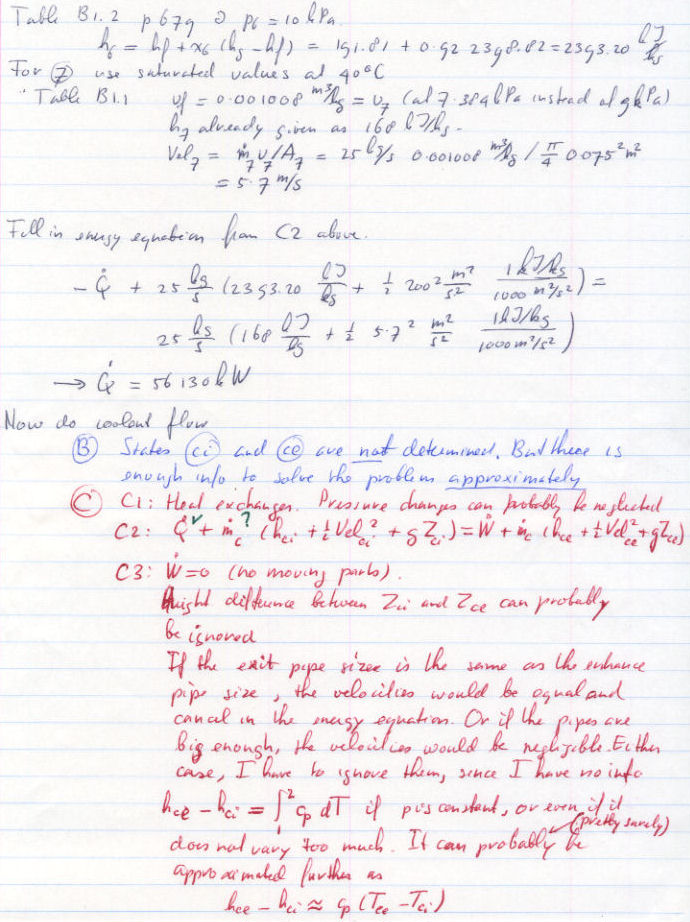 Table B1.2 p 679 @ p6 = 10 kPa.
h6 = hf + x6 (hg - hf) = 191.81 + 0.92 2398.82 = 2393.20 kJ/kg
For ⑦ use saturated values at 40°C
Table B1.1 vf = 0.001008 m³/kg = v7 (at 7.384 kPa instead of 9 kPa)
h7 already given as 168 kJ/kg.
Vel7 = ṁ7 v7/A7 = 25 kg/s 0.001008 m³/kg / π/4 0.075² m²
= 5.7 m/s
Fill in energy equation from C2 above.
- Q̇ + 25 kg/s (2393.20 kJ/kg + 1/2 200² m²/s² 1 kJ/kg / 1000 m²/s²) =
25 kg/s (168 kJ/kg + 1/2 5.7² m²/s² 1 kJ/kg / 1000 m²/s²)
→ Q̇ = 56130 kW
Now do coolant flow
Ⓑ States (ci) and (ce) are not determined. But there is
enough info to solve the problem approximately
Ⓒ C1: Heat exchanger. Pressure changes can probably be neglected
C2: Q̇✓ + ṁc? (hci + 1/2 Velci² + gZci) = Ẇ + ṁc (hce + 1/2 Velce² + gZce)
C3: Ẇ = 0 (no moving parts).
Height difference between Zci and Zce can probably
be ignored
If the exit pipe sizee is the same as the enhance
pipe size, the velocities would be equal and
cancel in the energy equation. Or if the pipes are
big enough, the velocities would be negligible. Either
case, I have to ignore them, since I have no info
hce - hci = ∫² cp dT if p is constant, or even if it
(pretty surely)
does not vary too much. It can probably be
approximated further as
hce - hci ≈ cp (Tce - Tci)